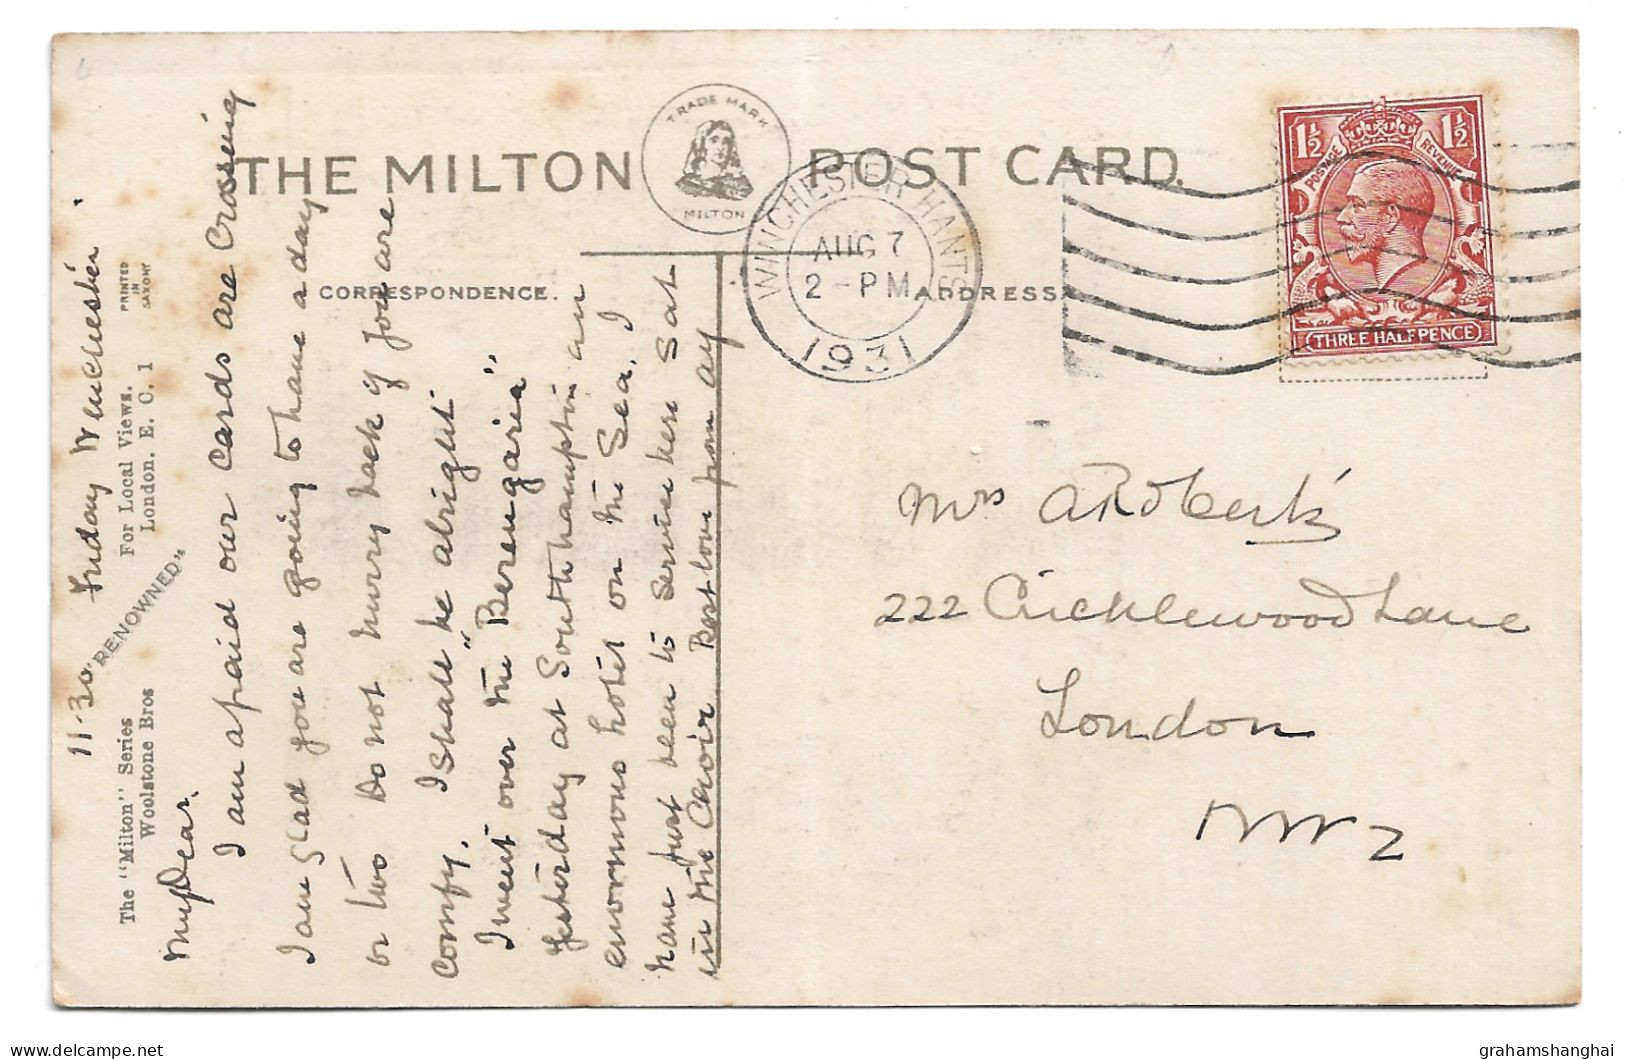 THE MILTON POST CARD.
TRADE MARK
MILTON
CORRESPONDENCE.
ADDRESS
WINCHESTER HANTS
AUG 7
2 - PM
1931
1½ 1½
POSTAGE REVENUE
THREE HALFPENCE
The "Milton" Series
Woolstone Bros
"RENOWNED"
For Local Views.
London. E. C. 1
PRINTED
IN
SAXONY
11-30 Friday Winchester.
My Dear.
I am afraid our Cards are Crossing
I am Glad you are going to have a day
or two Do not hurry back if you are
Comfy. I shall be alright
I went over the "Berengaria"
Yesterday at Southampton an
enormous hotel on the Sea. I
have just been to Service here Sat
in the Choir Best love from ay
Mrs A Roberts
222 Cricklewood Lane
London
NW2
delcampe.net
grahamshanghai